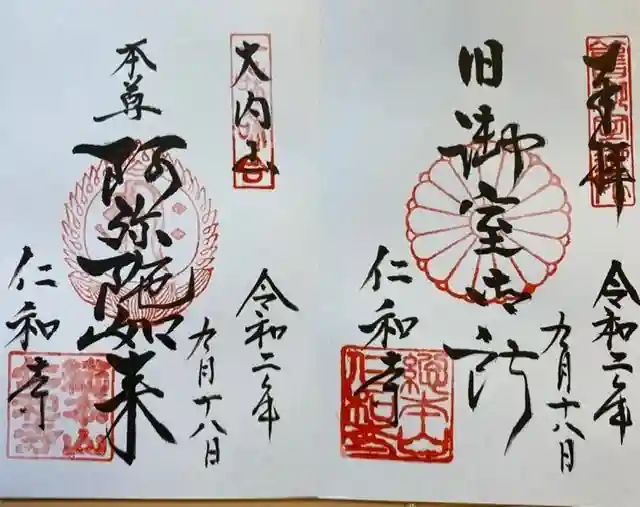 奉拝
令和二年
九月十八日
旧御室御所
仁和寺
大内山
令和二年
九月十八日
本尊
阿弥陀如来
仁和寺
總本山
仁和寺